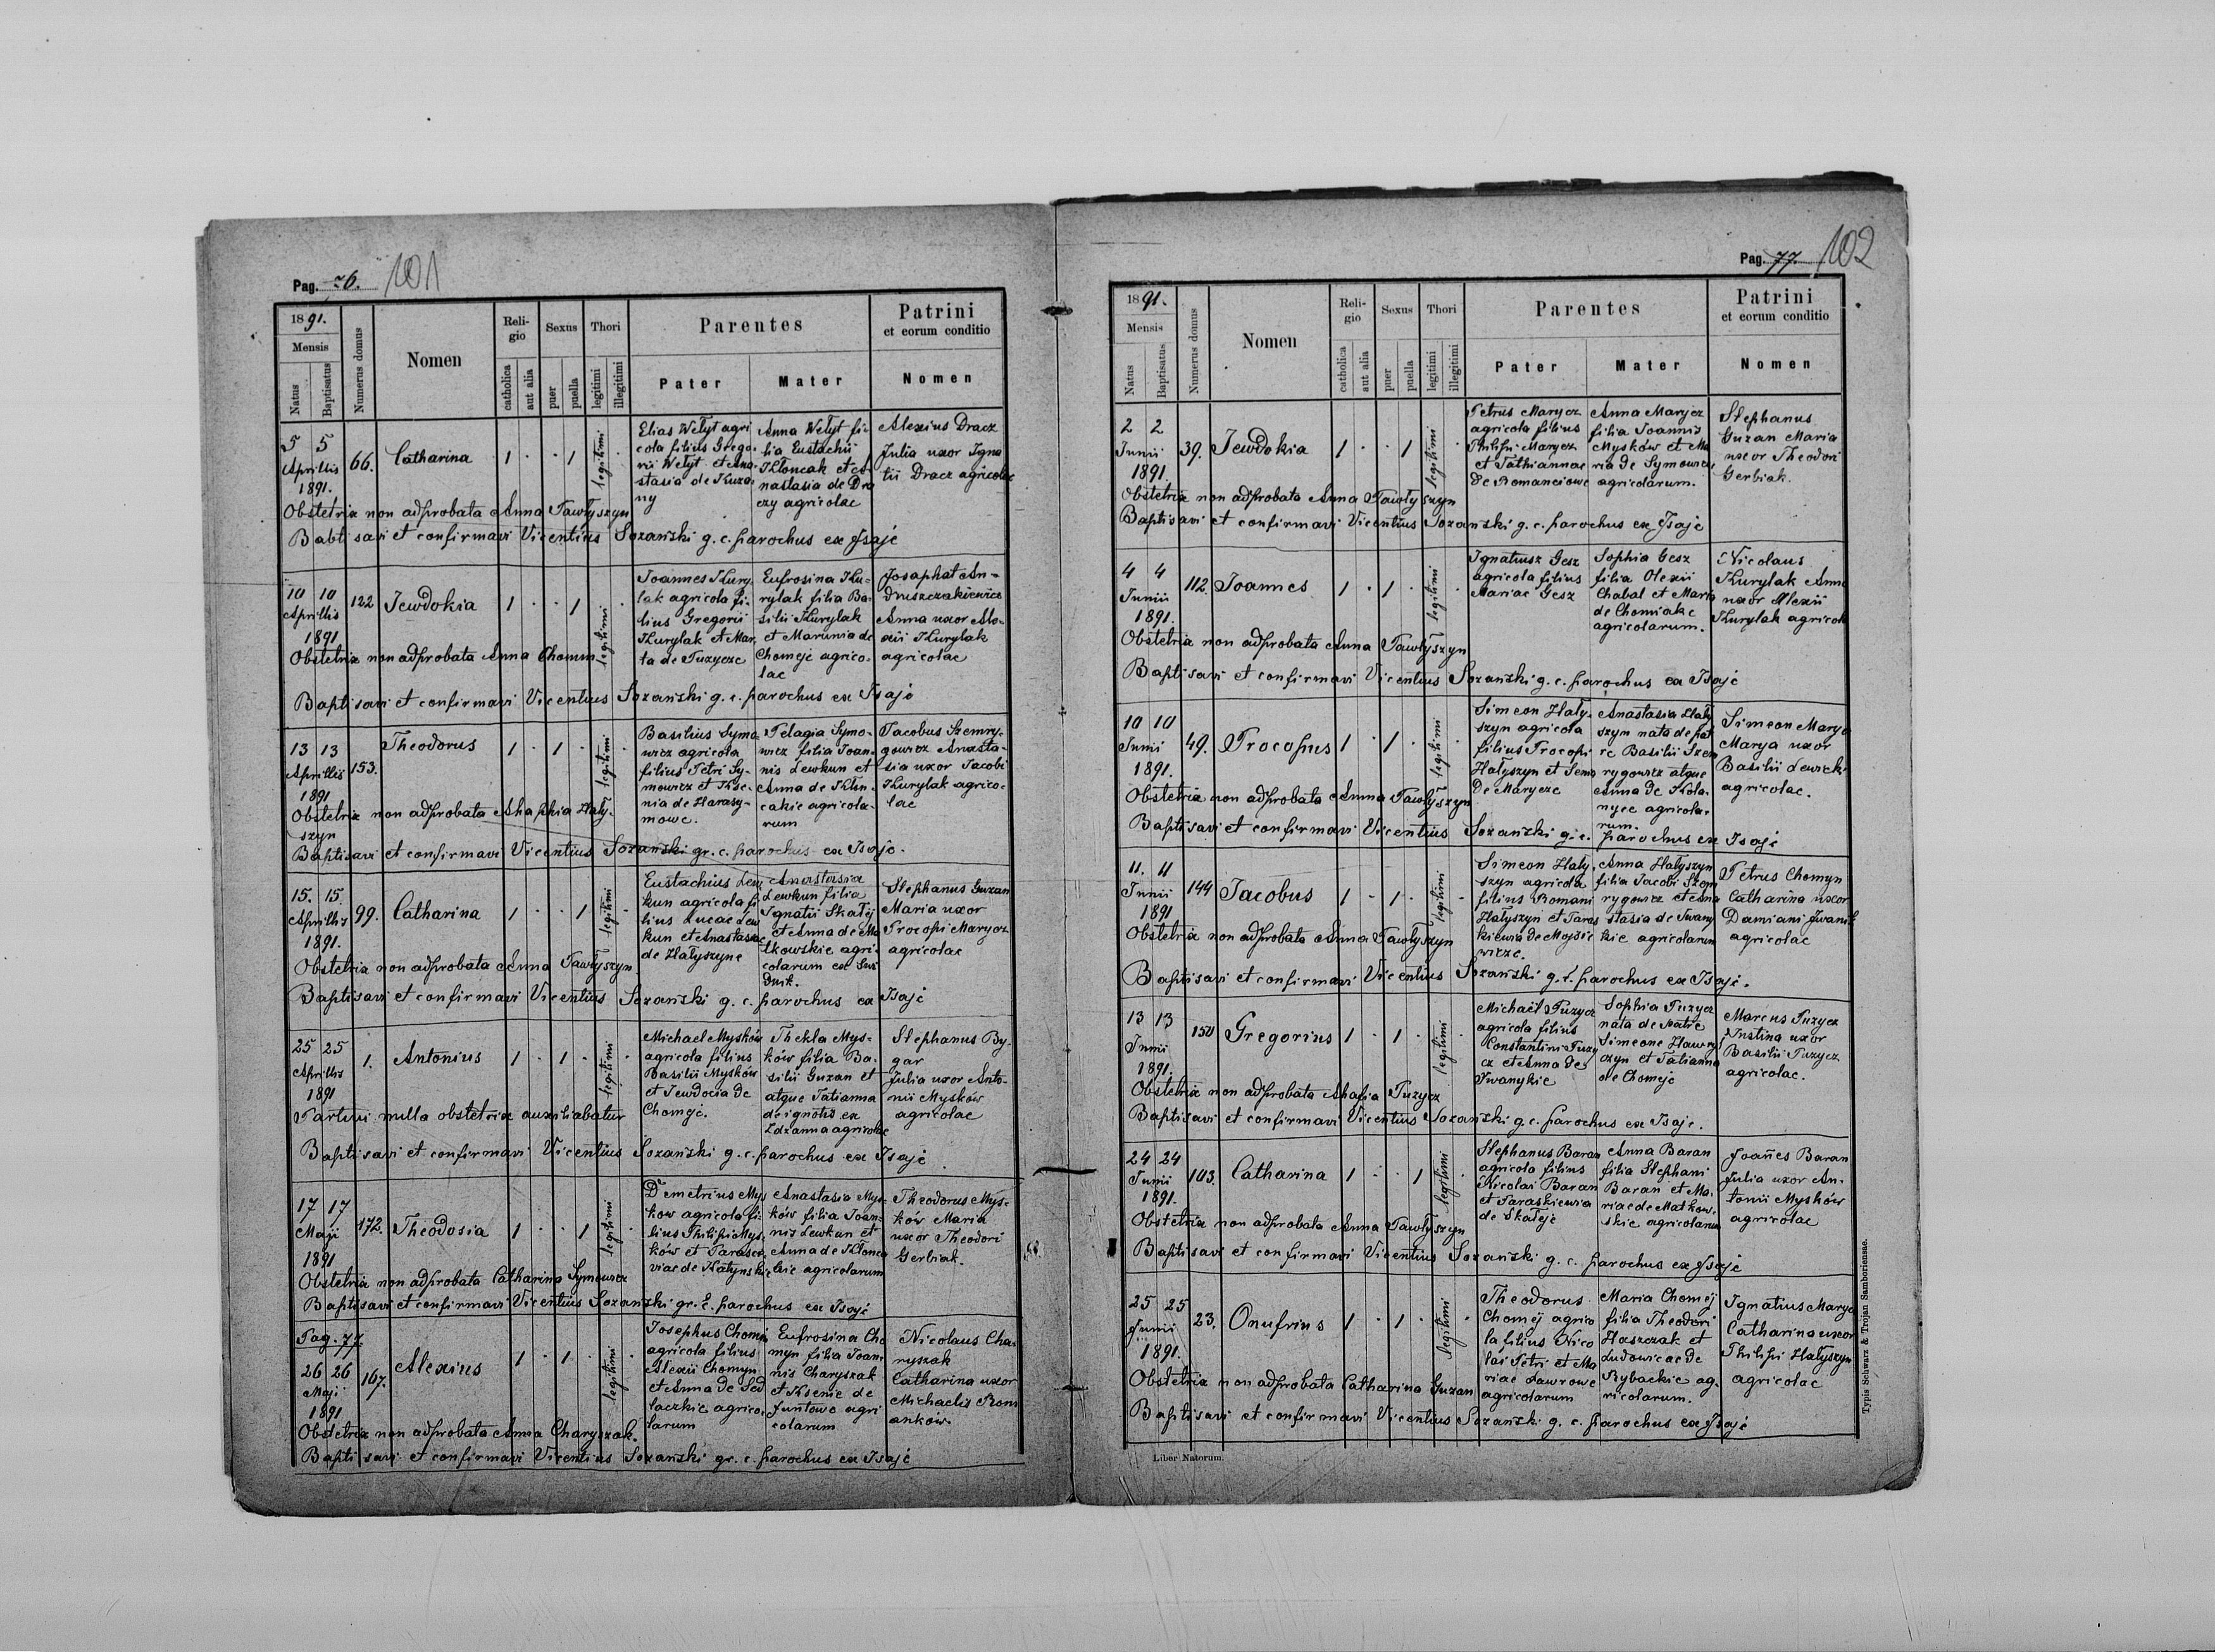 Pag. 76. 101
1891.
Mensis
Natus
Baptisatus
Numerus domus
Nomen
Reli-
gio
catholica
aut alia
Sexus
puer
puella
Thori
legitimi
illegitimi
Parentes
Pater
Mater
Patrini
et eorum conditio
Nomen
5 5
Aprilis
1891.
66.
Catharina
1 · · 1
legitimi
Elias Wełyt agri
cola filius Grego-
rii Wełyt et Ana-
stasia de Kuza-
ny
Anna Wełyt fi-
lia Eustachii
Kłoncak et A-
nastasia de Dra
czy agricolae
Alexius Dracz
Julia uxor Igna
tii Dracz agricolae
Obstetrix non adprobata Anna Pawłyszyn
Babtisavi et confirmavi Vicentius Sozański g. c. parochus ex Isaje
10 10
Aprilis
1891
122
Jewdokia
1 · · 1
legitimi
Joannes Kury-
lak agricola fi-
lius Gregorii
Kurylak et Mar-
ta de Tuzycze
Eufrosina Ku-
rylak filia Ba-
silii Kurylak
et Marunia de
Chomeje agrico-
lae
Josaphat An-
druszczakiewicz
Anna uxor Ale-
xii Kurylak
agricolae
Obstetrix non adprobata Anna Chomin
Baptisavi et confirmavi Vicentius Sozański g. c. parochus ex Isaje
13 13
Aprilis
1891
153.
Theodorus
1 · 1 ·
legitimi
Basilius Symo-
wicz agricola
filius Petri Sy-
mowicz et Kse-
nia de Harasy-
mowe.
Pelagia Symo-
wicz filia Joan-
nis Lewkun et
Anna de Kłon-
cakie agricola-
rum
Jacobus Szemry-
gowicz Anasta-
sia uxor Jacobi
Kurylak agrico-
lae
Obstetrix non adprobata Ahaphia Hały-
szyn
Baptisavi et confirmavi Vicentius Sozański gr. c. parochus ex Isaje.
15. 15.
Aprilis
1891.
99.
Catharina
1 · · 1
legitimi
Eustachius Lew
kun agricola fi
lius Lucae Lew
kun et Anastasiae
de Hałyszyne
Anastasia
Lewkun filia
Ignatii Skałej
et Anna de Ma
tkowskie agri-
colarum ex
Stephanus Guzan
Maria uxor
Procopi Marycz
agricolae
Obstetrix non adprobata Anna Pawłyszyn
Baptisavi et confirmavi Vicentius Sozański g. c. parochus ex Isaje
25 25
Aprilis
1891
1.
Antonius
1 · 1 ·
legitimi
Michael Mysków
agricola filius
Basilii Mysków
et Jewdocia de
Chomeje.
Thekla Mys-
ków filia Ba-
silii Guzan et
atque Tatianna
de ignotis ex
Zdzanna agricolae
Stephanus By-
gar
Julia uxor Anto-
nii Mysków
agricolae
Partui nulla obstetrix auxiliabatur
Baptisavi et confirmavi Vicentius Sozański g. c. parochus ex Isaje
17 17
Maji
1891
172.
Theodosia
1 · · 1
legitimi
Demetrius Mys
kow agricola fi-
lius Philipi Mys-
ków et Parasce-
viae de Hatynskie
Anastasia Mys-
ków filia Joan-
nis Lewkun et
Anna de Kłonca
kie agricolarum
Theodorus Mys-
ków Maria
uxor Theodori
Gerbiak.
Obstetrix non adprobata Catharina Symowicz
Baptisavi et confirmavi Vicentius Sozański gr. c. parochus ex Isaje
Pag. 77
26 26
Maji
1891
167.
Alexius
1 · 1 ·
legitimi
Josephus Chomin
agricola filius
Alexii Chomyn
et Anna de Sed
laczkie agrico-
larum
Eufrosina Cho
myn filia Joan-
nis Charyszak
et Ksenie de
Juńtowe agri
colarum
Nicolaus Cha-
ryszak
Catharina uxor
Michaelis Rom
anków
Obstetrix non adprobata Anna Charyszak.
Baptisavi et confirmavi Vicentius Sozański gr. c. parochus ex Isaje
Pag. 77. 102
1891.
Mensis
Natus
Baptisatus
Numerus domus
Nomen
Reli-
gio
catholica
aut alia
Sexus
puer
puella
Thori
legitimi
illegitimi
Parentes
Pater
Mater
Patrini
et eorum conditio
Nomen
2 2
Junii
1891.
39.
Jewdokia
1 · · 1
legitimi
Petrus Marycz
agricola filius
Philipi Marycz
et Tathiannae
de Romanciowe
Anna Marycz
filia Joannis
Mysków et Ma
ria de Symowicze
agricolarum.
Stephanus
Guzan Maria
uxor Theodori
Gerbiak.
Obstetrix non adprobata Anna Pawłyszyn
Baptisavi et confirmavi Vicentius Sozański g. c. parochus ex Isaje
4 4
Junii
1891.
112.
Joannes
1 · 1 ·
legitimi
Ignatiusz Gesz
agricola filius
Mariae Gesz
Sophia Gesz
filia Olexii
Chabal et Maria
de Chomiake
agricolarum.
Nicolaus
Kurylak Anna
uxor Alexii
Kurylak agricol
Obstetrix non adprobata Anna Pawłyszyn
Baptisavi et confirmavi Vicentius Sozański g. c. parochus ex Isaje
10 10
Junii
1891.
49.
Procopius
1 · 1 ·
legitimi
Simeon Hały-
szyn agricola
filius Procopi
Hałyszyn et Sema
de Marycze
Anastasia Hały
szyn nata de pat
re Basilii Szem
rygowicz atque
Anna de Kola-
nyce agricola-
rum.
Simeon Maryc
Marya uxor
Basilii Lewicki
agricolae.
Obstetrix non adprobata Anna Pawłyszyn
Baptisavi et confirmavi Vicentius Sozański g. c. parochus ex Isaje
11. 11
Junii
1891
144
Jacobus
1 - 1 ·
legitimi
Simeon Hały-
szyn agricola
filius Romani
Hałyszyn et Paras
kiewia de Mojsie
wicze.
Anna Hałyszyn
filia Jacobi Szem
rygowicz et Ana
stasia de Iwany
kie agricolarum
Petrus Chomyn
Catharina uxor
Damiani Iwanik
agricolae
Obstetrix non adprobata Anna Pawłyszyn
Baptisavi et confirmavi Vicentius Sozański g. c. parochus ex Isaje.
13 13
Junii
1891.
150
Gregorius
1 · 1 ·
legitimi
Michaël Tuzycz
agricola filius
Constantini Tuzy
cz et Anna de
Iwanykie
Sophia Tuzycz
nata de Patre
Simeone Hawry
szyn et Tatianna
de Chomeje
Marcus Tuzycz
Justina uxor
Basilii Tuzycz
agricolae.
Obstetrix non adprobata Ahafia Tuzycz
Baptisavi et confirmavi Vicentius Sozański g. c. parochus ex Isaje.
24 24
Junii
1891.
103.
Catharina
1 · · 1
legitimi
Stephanus Baran
agricola filius
Nicolai Baran
et Paraskiewia
de Skałeje
Anna Baran
filia Stephani
Baran et Ma-
riae de Matkow-
skie agricolarum
Joañes Baran
Julia uxor An-
tonii Mysków
agricolae
Obstetrix non adprobata Anna Pawłyszyn
Baptisavi et confirmavi Vicentius Sozański g. c. parochus ex Isaje
25 25
Junii
1891.
23.
Onufrius
1 · 1 ·
legitimi
Theodorus
Chomej agrico
la filius Nico
lai Petri et Ma
riae Lawrowe
agricolarum
Maria Chomej
filia Theodori
Haszczak et
Ludowicae de
Rybackie ag-
ricolarum.
Ignatius Maryc
Catharina uxor
Philipi Hałyszyn
agricolae
Obstetrix non adprobata Catharina Guzan
Baptisavi et confirmavi Vicentius Sozański g. c. parochus ex Isaje
Liber Natorum.
Typis Schwarz & Trojan Samboriensae.